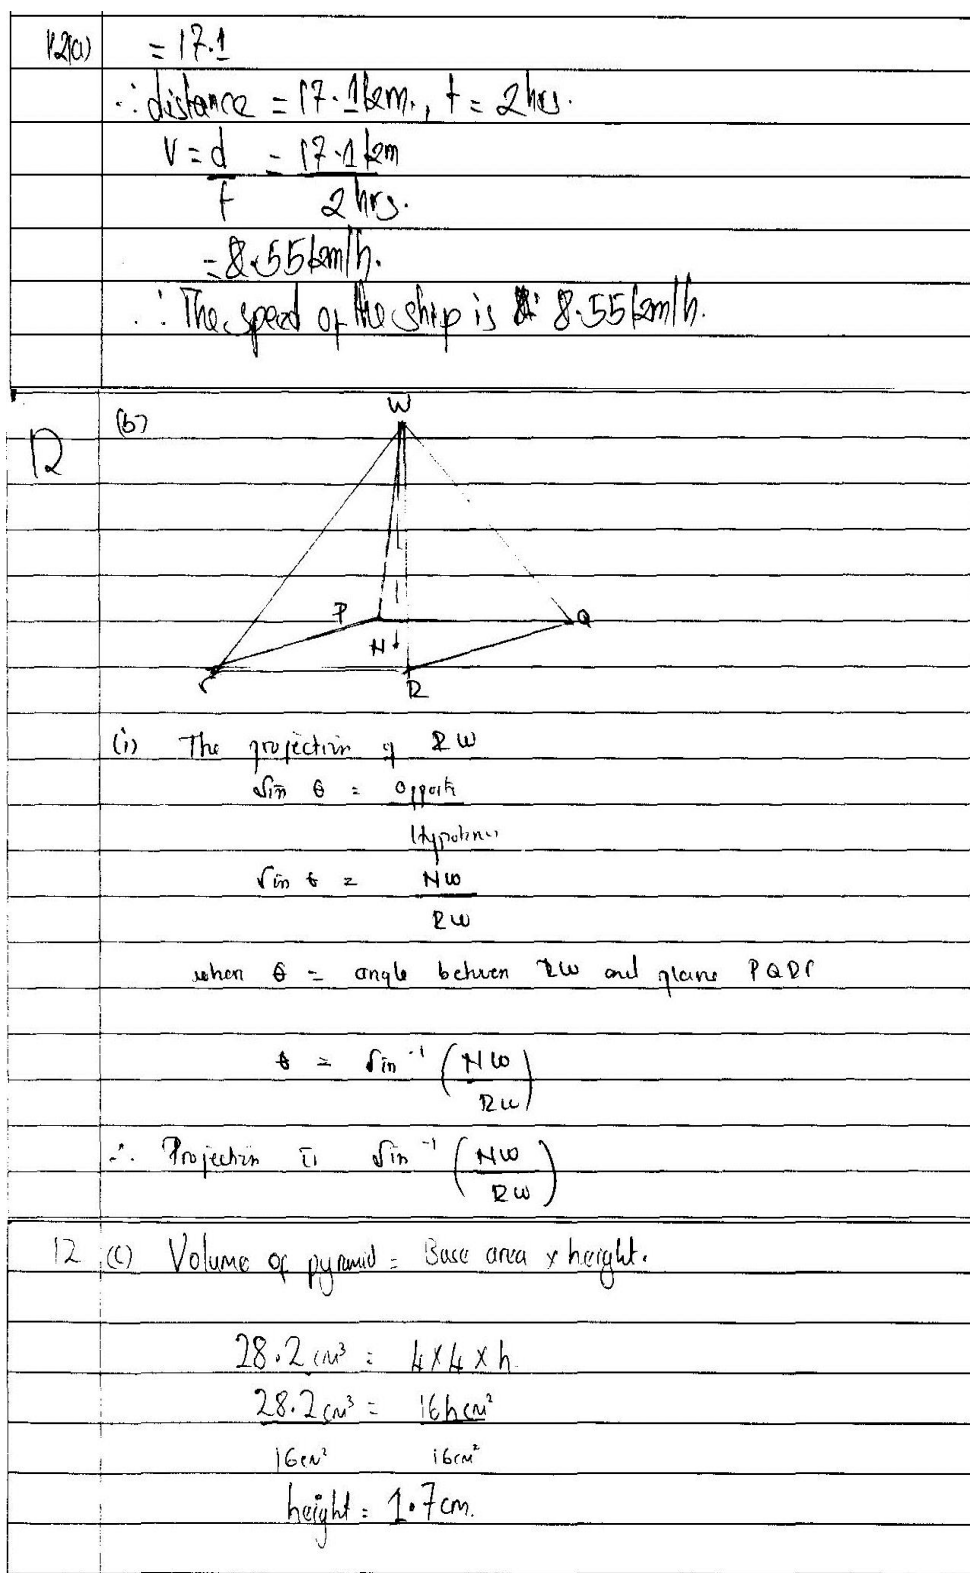 12(a) = 17.1
∴ distance = 17.1km., t = 2hrs.
V = d/t = 17.1km/2hrs.
= 8.55km/h.
∴ The speed of the ship is 8.55km/h.
12 (b)
W
P
Q
N
R
(i) The projection of RW
Sin θ = Opposite
Hypotenus
Sin θ = NW
RW
when θ = angle between RW and plane PQRS
θ = Sin⁻¹ (NW/RW)
∴ Projection is Sin⁻¹ (NW/RW)
12 (c) Volume of pyramid = Base area x height.
28.2cm³ = 4x4xh
28.2cm³ = 16hcm²
16cm² 16cm²
height = 1.7cm.